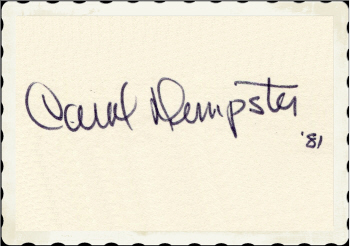 Carol Dempster
'81